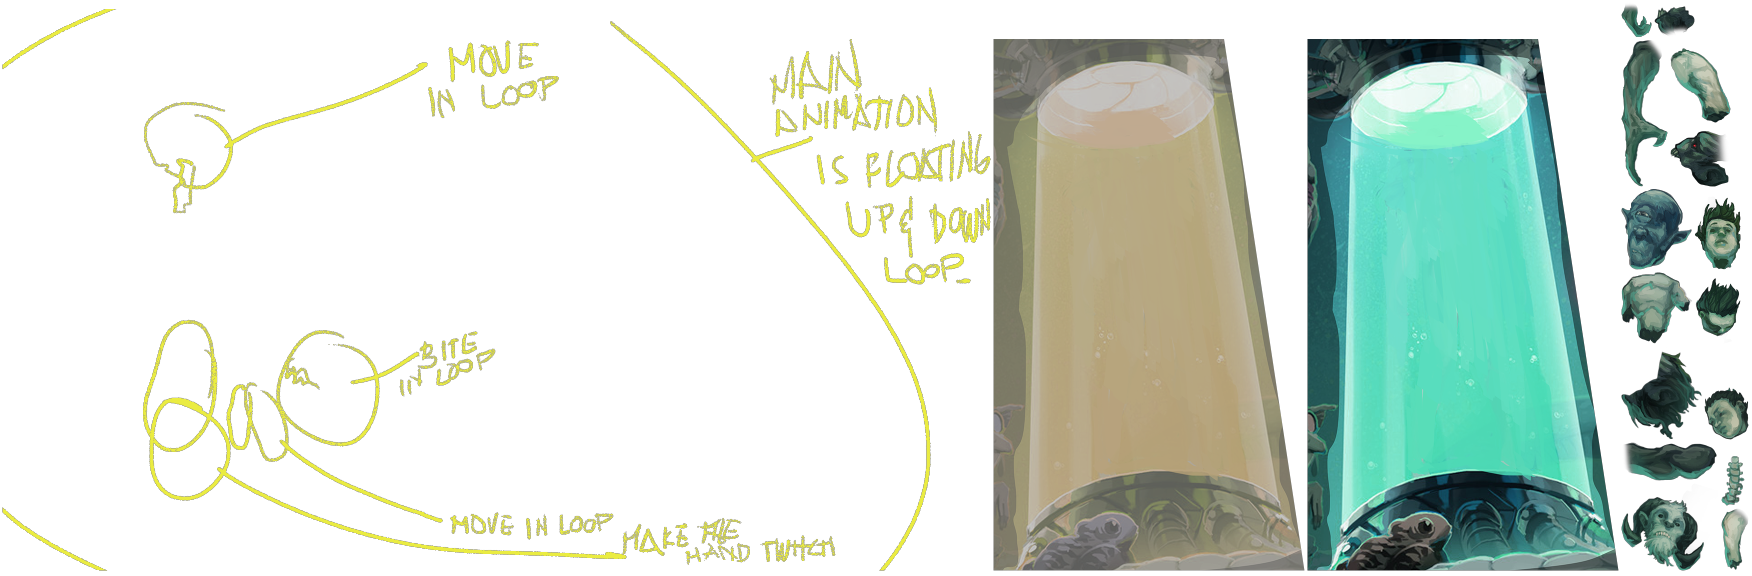 MOVE
IN LOOP
MAIN
ANIMATION
IS FLOATING
UP & DOWN
LOOP
BITE
IN LOOP
MOVE IN LOOP
MAKE THE
HAND TWITCH